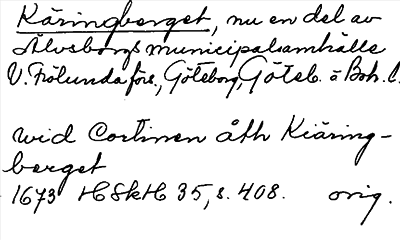 Käringberget, nu en del av
Älvsborgs municipalsamhälle
V. Frölunda förs., Göteborg, Göteb. å Boh. l.
wid Cortinen åth Kiäring-
berget
1673 HSkH 35, s. 408. orig.